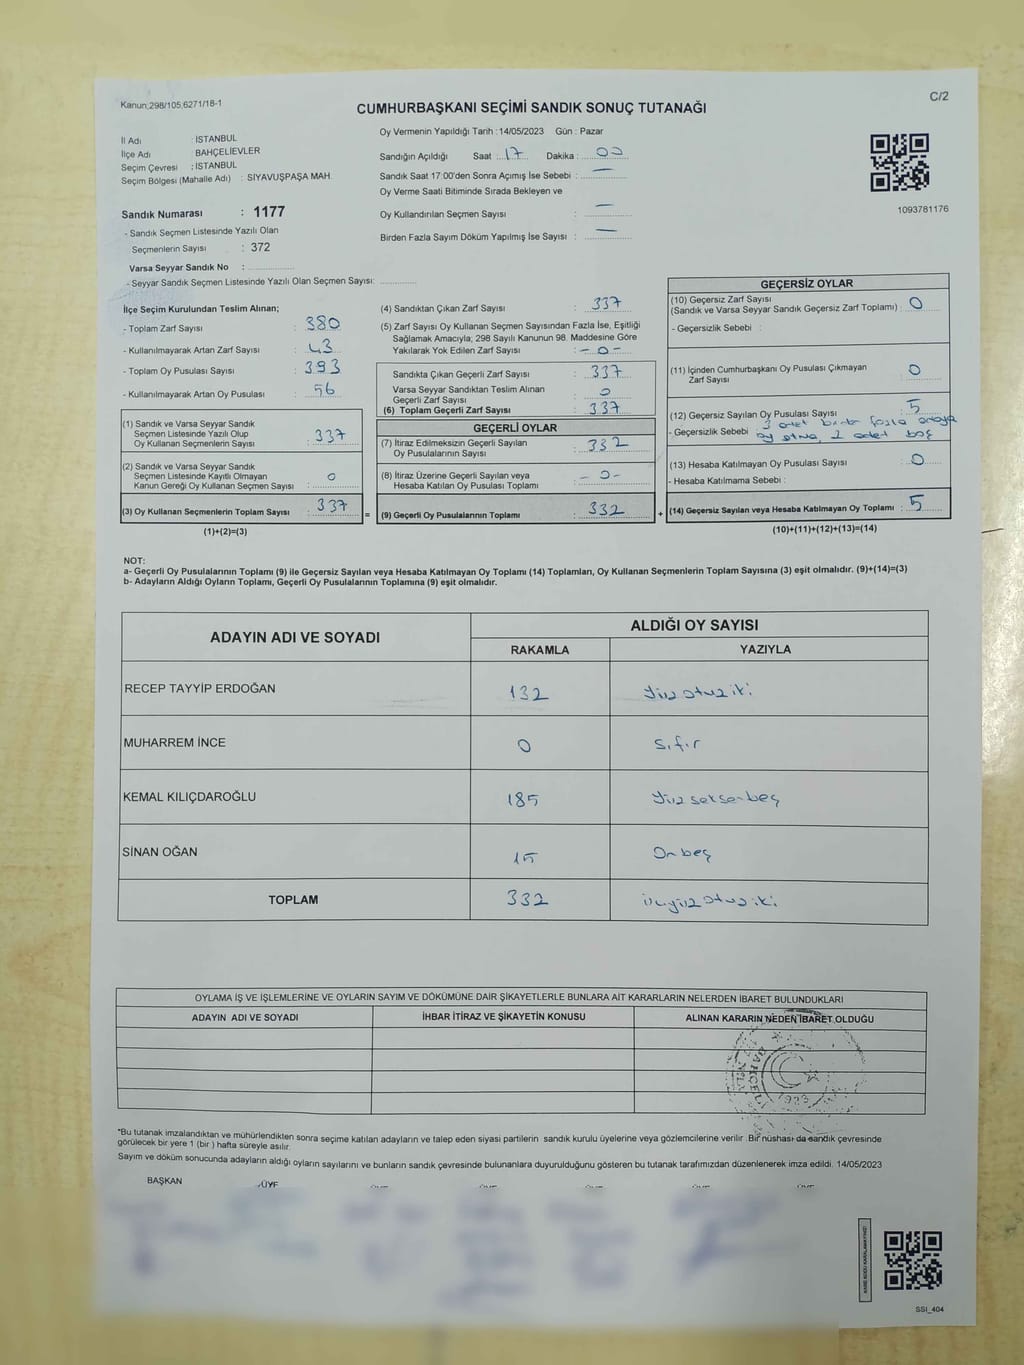 Kanun;298/105;6271/18-1
C/2
CUMHURBAŞKANI SEÇİMİ SANDIK SONUÇ TUTANAĞI
İl Adı : İSTANBUL
İlçe Adı : BAHÇELİEVLER
Seçim Çevresi : İSTANBUL
Seçim Bölgesi (Mahalle Adı) : SİYAVUŞPAŞA MAH.
Oy Vermenin Yapıldığı Tarih : 14/05/2023 Gün : Pazar
Sandığın Açıldığı Saat : 17 Dakika : 00
Sandık Saat 17:00'den Sonra Açımış İse Sebebi : —
Oy Verme Saati Bitiminde Sırada Bekleyen ve
Oy Kullandırılan Seçmen Sayısı : —
Birden Fazla Sayım Döküm Yapılmış İse Sayısı : —
1093781176
Sandık Numarası : 1177
- Sandık Seçmen Listesinde Yazılı Olan
Seçmenlerin Sayısı : 372
Varsa Seyyar Sandık No :
- Seyyar Sandık Seçmen Listesinde Yazılı Olan Seçmen Sayısı:
İlçe Seçim Kurulundan Teslim Alınan;
- Toplam Zarf Sayısı : 380
- Kullanılmayarak Artan Zarf Sayısı : 43
- Toplam Oy Pusulası Sayısı : 393
- Kullanılmayarak Artan Oy Pusulası : 56
(1) Sandık ve Varsa Seyyar Sandık
Seçmen Listesinde Yazılı Olup
Oy Kullanan Seçmenlerin Sayısı : 337
(2) Sandık ve Varsa Seyyar Sandık
Seçmen Listesinde Kayıtlı Olmayan
Kanun Gereği Oy Kullanan Seçmen Sayısı : 0
(3) Oy Kullanan Seçmenlerin Toplam Sayısı : 337
(1)+(2)=(3)
=
(4) Sandıktan Çıkan Zarf Sayısı : 337
(5) Zarf Sayısı Oy Kullanan Seçmen Sayısından Fazla İse, Eşitliği
Sağlamak Amacıyla; 298 Sayılı Kanunun 98. Maddesine Göre
Yakılarak Yok Edilen Zarf Sayısı : - 0 -
Sandıkta Çıkan Geçerli Zarf Sayısı : 337
Varsa Seyyar Sandıktan Teslim Alınan
Geçerli Zarf Sayısı : 0
(6) Toplam Geçerli Zarf Sayısı : 337
GEÇERLİ OYLAR
(7) İtiraz Edilmeksizin Geçerli Sayılan
Oy Pusulalarının Sayısı : 332
(8) İtiraz Üzerine Geçerli Sayılan veya
Hesaba Katılan Oy Pusulası Toplamı : - 0 -
(9) Geçerli Oy Pusulalarının Toplamı : 332
+
GEÇERSİZ OYLAR
(10) Geçersiz Zarf Sayısı
(Sandık ve Varsa Seyyar Sandık Geçersiz Zarf Toplamı) : 0
- Geçersizlik Sebebi :
(11) İçinden Cumhurbaşkanı Oy Pusulası Çıkmayan
Zarf Sayısı : 0
(12) Geçersiz Sayılan Oy Pusulası Sayısı : 5
- Geçersizlik Sebebi : 3 adet birden fazla
oy atma, 2 adet boş
(13) Hesaba Katılmayan Oy Pusulası Sayısı : 0
- Hesaba Katılmama Sebebi :
(14) Geçersiz Sayılan veya Hesaba Katılmayan Oy Toplamı : 5
(10)+(11)+(12)+(13)=(14)
NOT:
a- Geçerli Oy Pusulasının Toplamı (9) ile Geçersiz Sayılan veya Hesaba Katılmayan Oy Toplamı (14) Toplamları, Oy Kullanan Seçmenlerin Toplam Sayısına (3) eşit olmalıdır. (9)+(14)=(3)
b- Adayların Aldığı Oyların Toplamı, Geçerli Oy Pusulalarının Toplamına (9) eşit olmalıdır.
ADAYIN ADI VE SOYADI
ALDIĞI OY SAYISI
RAKAMLA YAZIYLA
RECEP TAYYİP ERDOĞAN 132 Yüz otuz iki
MUHARREM İNCE 0 Sıfır
KEMAL KILIÇDAROĞLU 185 Yüz seksenbeş
SİNAN OĞAN 15 Onbeş
TOPLAM 332 üçyüz otuz iki
OYLAMA İŞ VE İŞLEMLERİNE VE OYLARIN SAYIM VE DÖKÜMÜNE DAİR ŞİKAYETLERLE BUNLARA AİT KARARLARIN NELERDEN İBARET BULUNDUKLARI
ADAYIN ADI VE SOYADI İHBAR İTİRAZ VE ŞİKAYETİN KONUSU ALINAN KARARIN NEDEN İBARET OLDUĞU
1923
*Bu tutanak imzalandıktan ve mühürlendikten sonra seçime katılan adayların ve talep eden siyasi partilerin sandık kurulu üyelerine veya gözlemcilerine verilir. Bir nüshası da sandık çevresinde
görülecek bir yere 1 (bir ) hafta süreyle asılır.
Sayım ve döküm sonucunda adayların aldığı oyların sayılarını ve bunların sandık çevresinde bulunanlara duyurulduğunu gösteren bu tutanak tarafımızdan düzenlenerek imza edildi. 14/05/2023
BAŞKAN ÜYE
SSI_404